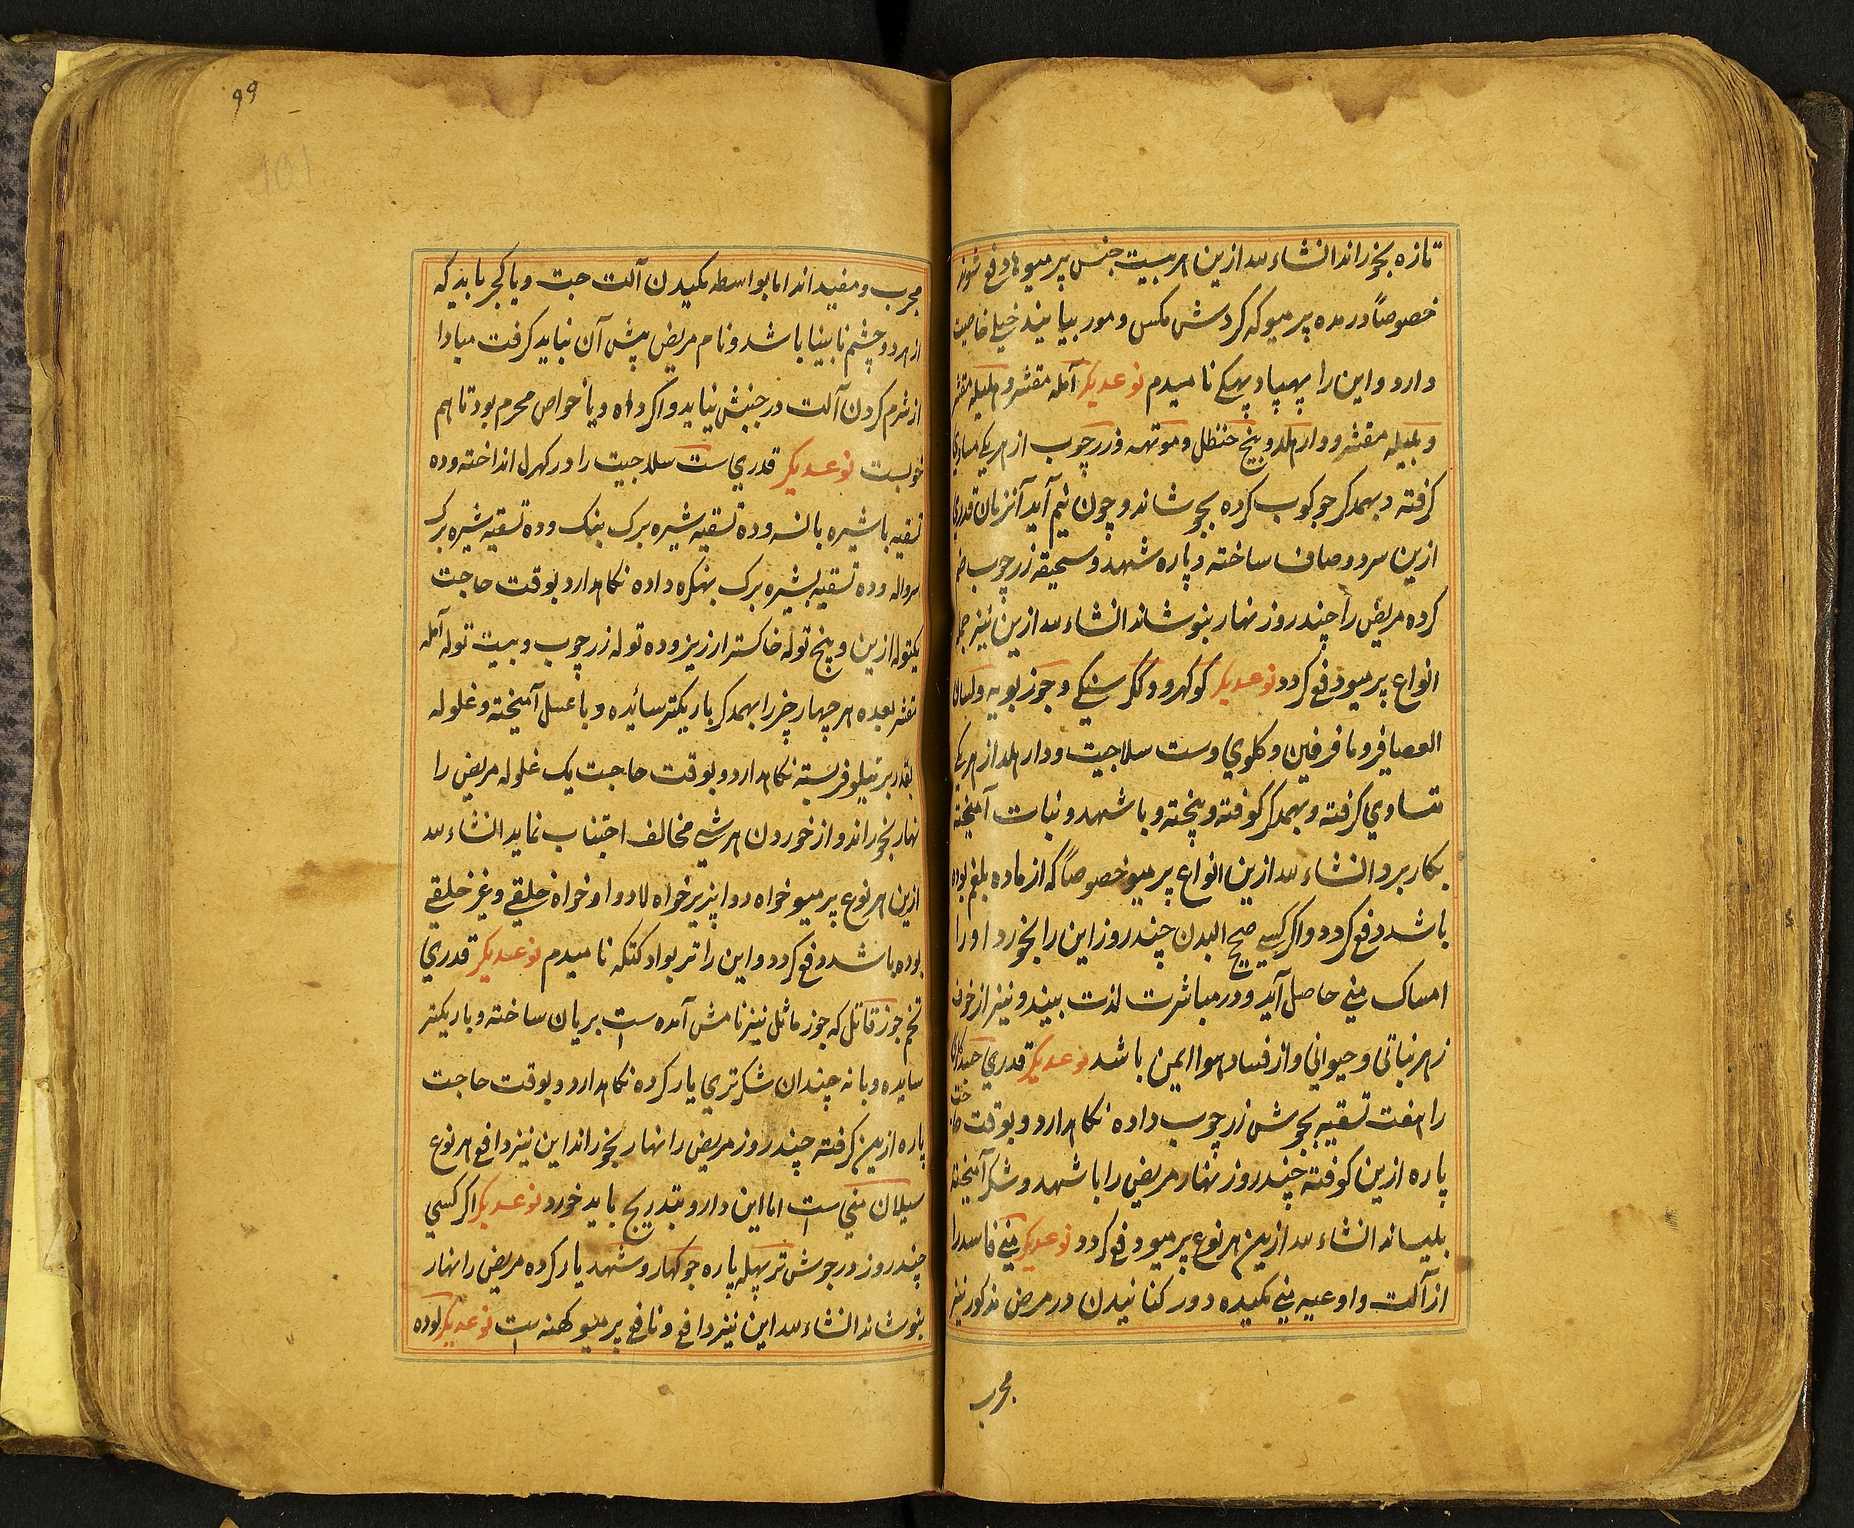 تازه بخوراند انشاءالله ازین هر بیست جنس پرمیوها دفع شوند
خصوصاً در مده پرمیو که کردش مکس و مور بیابیند خیلی خاصیت
دارد و این را نامیدم نوعدیکر آمله مقشر و هلیله مقشر
و بلیله مقشر و دارهلد و بیخ حنظل و موتهه و زرچوب از هر یکی مساوی
کرفته و بهمدکر جوکوب کرده بجوشاند و چون نیم آید آنزمان قدری
ازین سرد و صاف ساخته و پاره شهد و سحیقه زرچوب ضم
کرده مریض را چند روز نهار بنوشاند انشاءالله ازین نیز جمله
انواع پرمیو دفع کردد نوعدیکر کوکهرو و کنکر سنکی و جوزبویه و لسان
العصافیر و مافرفین و کلوی و ست سلاجیت و دارهلد از هر یکی
متساوی کرفته و بهمدکر کوفته و پخته و با شهد و نبات آمیخته
بکار برد انشاءالله ازین انواع پرمیو خصوصاً که از ماده بلغم بوده
باشد دفع کردد و اکر کسی صحیح البدن چند روز این را بخورد او را
امساک منی حاصل آید و در مباشرت لذت بیند و نیز از خوردن
زهر نباتی و حیوانی و از فساد هوا ایمن باشد نوعدیکر قدری
را هفت تسقیه بجوش زرچوب داده نکاهدارد و بوقت حاجت
پاره ازین کوفته چند روز نهار مریض را با شهد و شکر آمیخته
بلیساند انشاءالله ازین هر نوع پرمیو دفع کردد نوعدیکر منی فاسد را
از آلت و اوعیه منی مکیده دور کنانیدن در مرض مذکور نیز
مجرب
۹۹
101
مجرب و مفید اند اما بواسطه مکیدن آلت جت و یا کجر باید که
از هر دو چشم نابینا باشد و نام مریض پیش آن نباید کرفت مبادا
از شرم کردن آلت در جنبش نیاید و اکر داه و یا خواص محرم بود تا هم
خوبست نوعدیکر قدری ست سلاجیت را در کهرل انداخته و ده
تسقیه با شیره بانسه و ده تسقیه شیره برک بنک و ده تسقیه شیره برک
سرواله و ده تسقیه بشیره برک بهنکره داده نکاهدارد بوقت حاجت
یکتوله ازین و پنج توله خاکستر ارزیز و ده توله زرچوب و بیست توله آمله
مقشر بعده هر چهار چیز را بهمدکر باریکتر سائیده و با عسل آمیخته و غلوله
بقدر بر تیلو فربسته نکاهدارد و بوقت حاجت یک غلوله مریض را
نهار بخوراند و از خوردن هر شی مخالف اجتناب نماید انشاءالله
ازین هر نوع پرمیو خواه دواپذیر خواه لادوا و خواه خلیقی و غیر خلیقی
بوده باشد دفع کردد و این را تربواد کتکه نامیدم نوعدیکر قدری
تخم جوز قاتل که جوز ماثل نیز نامش آمده است بریان ساخته و باریکتر
سایده و بانه چندان شکر تری یار کرده نکاهدارد و بوقت حاجت
پاره ازین کرفته چند روز مریض را نهار بخوراند این نیز دافع هر نوع
سیلان منی است اما این دارو بتدریج باید خورد نوعدیکر اکر کسی
چند روز در جوش ترپهله پاره جوکهار و شهد یار کرده مریض را نهار
بنوشاند انشاءالله این نیز دافع و نافع پرمیو کهنه است نوعدیکر لوده